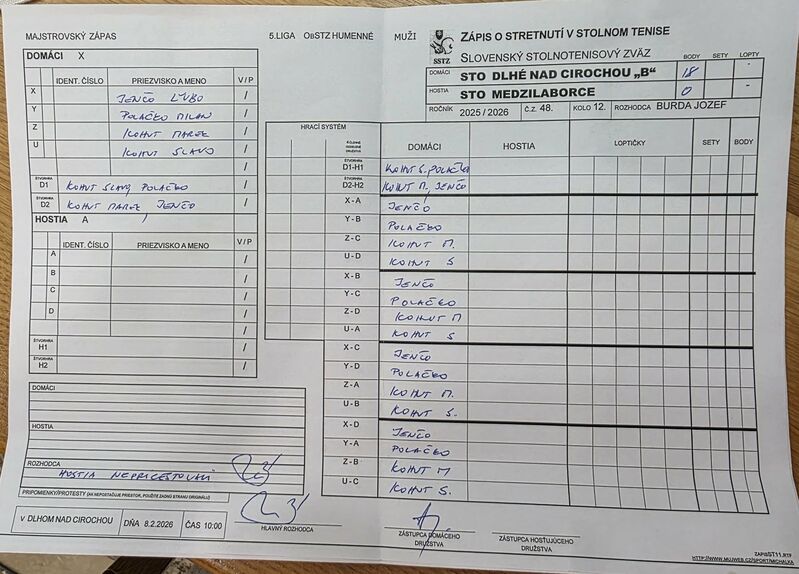 MAJSTROVSKÝ ZÁPAS
5.LIGA ObSTZ HUMENNÉ MUŽI
ZÁPIS O STRETNUTÍ V STOLNOM TENISE
SSTZ
SLOVENSKÝ STOLNOTENISOVÝ ZVÄZ
BODY SETY LOPTY
DOMÁCI STO DLHÉ NAD CIROCHOU „B“ 18 -
HOSTIA STO MEDZILABORCE 0 -
ROČNÍK 2025 / 2026 Č.Z. 48. KOLO 12. ROZHODCA BURDA JOZEF
DOMÁCI X
IDENT. ČÍSLO PRIEZVISKO A MENO V / P
X JENČO ĽUBO /
Y POLAČKO MILAN /
Z KOHUT MAREK /
U KOHUT SLAVO /
/
ŠTVORHRA D1 KOHUT SLAVO, POLAČKO /
ŠTVORHRA D2 KOHUT MAREK, JENČO /
HOSTIA A
IDENT. ČÍSLO PRIEZVISKO A MENO V / P
A /
B /
C /
D /
/
ŠTVORHRA H1 /
ŠTVORHRA H2 /
DOMÁCI
HOSTIA
ROZHODCA
HOSTIA NEPRICESTOVALI
PRIPOMIENKY/PROTESTY (AK NEPOSTAČUJE PRIESTOR, POUŽITE ZADNÚ STRANU ORIGINÁLU)
V DLHOM NAD CIROCHOU DŇA 8.2.2026 ČAS 10:00
HLAVNÝ ROZHODCA
HRACÍ SYSTÉM
DOMÁCI HOSTIA LOPTIČKY SETY BODY
ŠTVORHRA D1-H1 KOHUT S. POLAČKO
ŠTVORHRA D2-H2 KOHUT M, JENČO
X - A JENČO
Y - B POLAČKO
Z - C KOHUT M.
U - D KOHUT S
X - B JENČO
Y - C POLAČKO
Z - D KOHUT M
U - A KOHUT S
X - C JENČO
Y - D POLAČKO
Z - A KOHUT M.
U - B KOHUT S.
X - D JENČO
Y - A POLAČKO
Z - B KOHUT M
U - C KOHUT S.
ZÁSTUPCA DOMÁCEHO
DRUŽSTVA
ZÁSTUPCA HOSŤUJÚCEHO
DRUŽSTVA
ZAPISST11.RTF
HTTP://WWW.MUJWEB.CZ/SPORT/MICHALXA